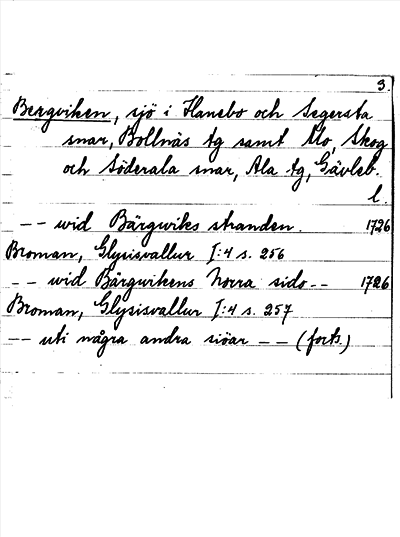 3.
Bergviken, sjö i Hanebo och Segersta
snar, Bollnäs tg samt Mo, Skog
och Söderala snar, Ala tg, Gävleb.
l.
-- wid Bärgwiks stranden. 1726
Broman, Glysisvallur I:4 s. 256
-- wid Bärgwikens norra sido -- 1726
Broman, Glysisvallur I:4 s. 257
-- uti några andra siöar -- (forts.)